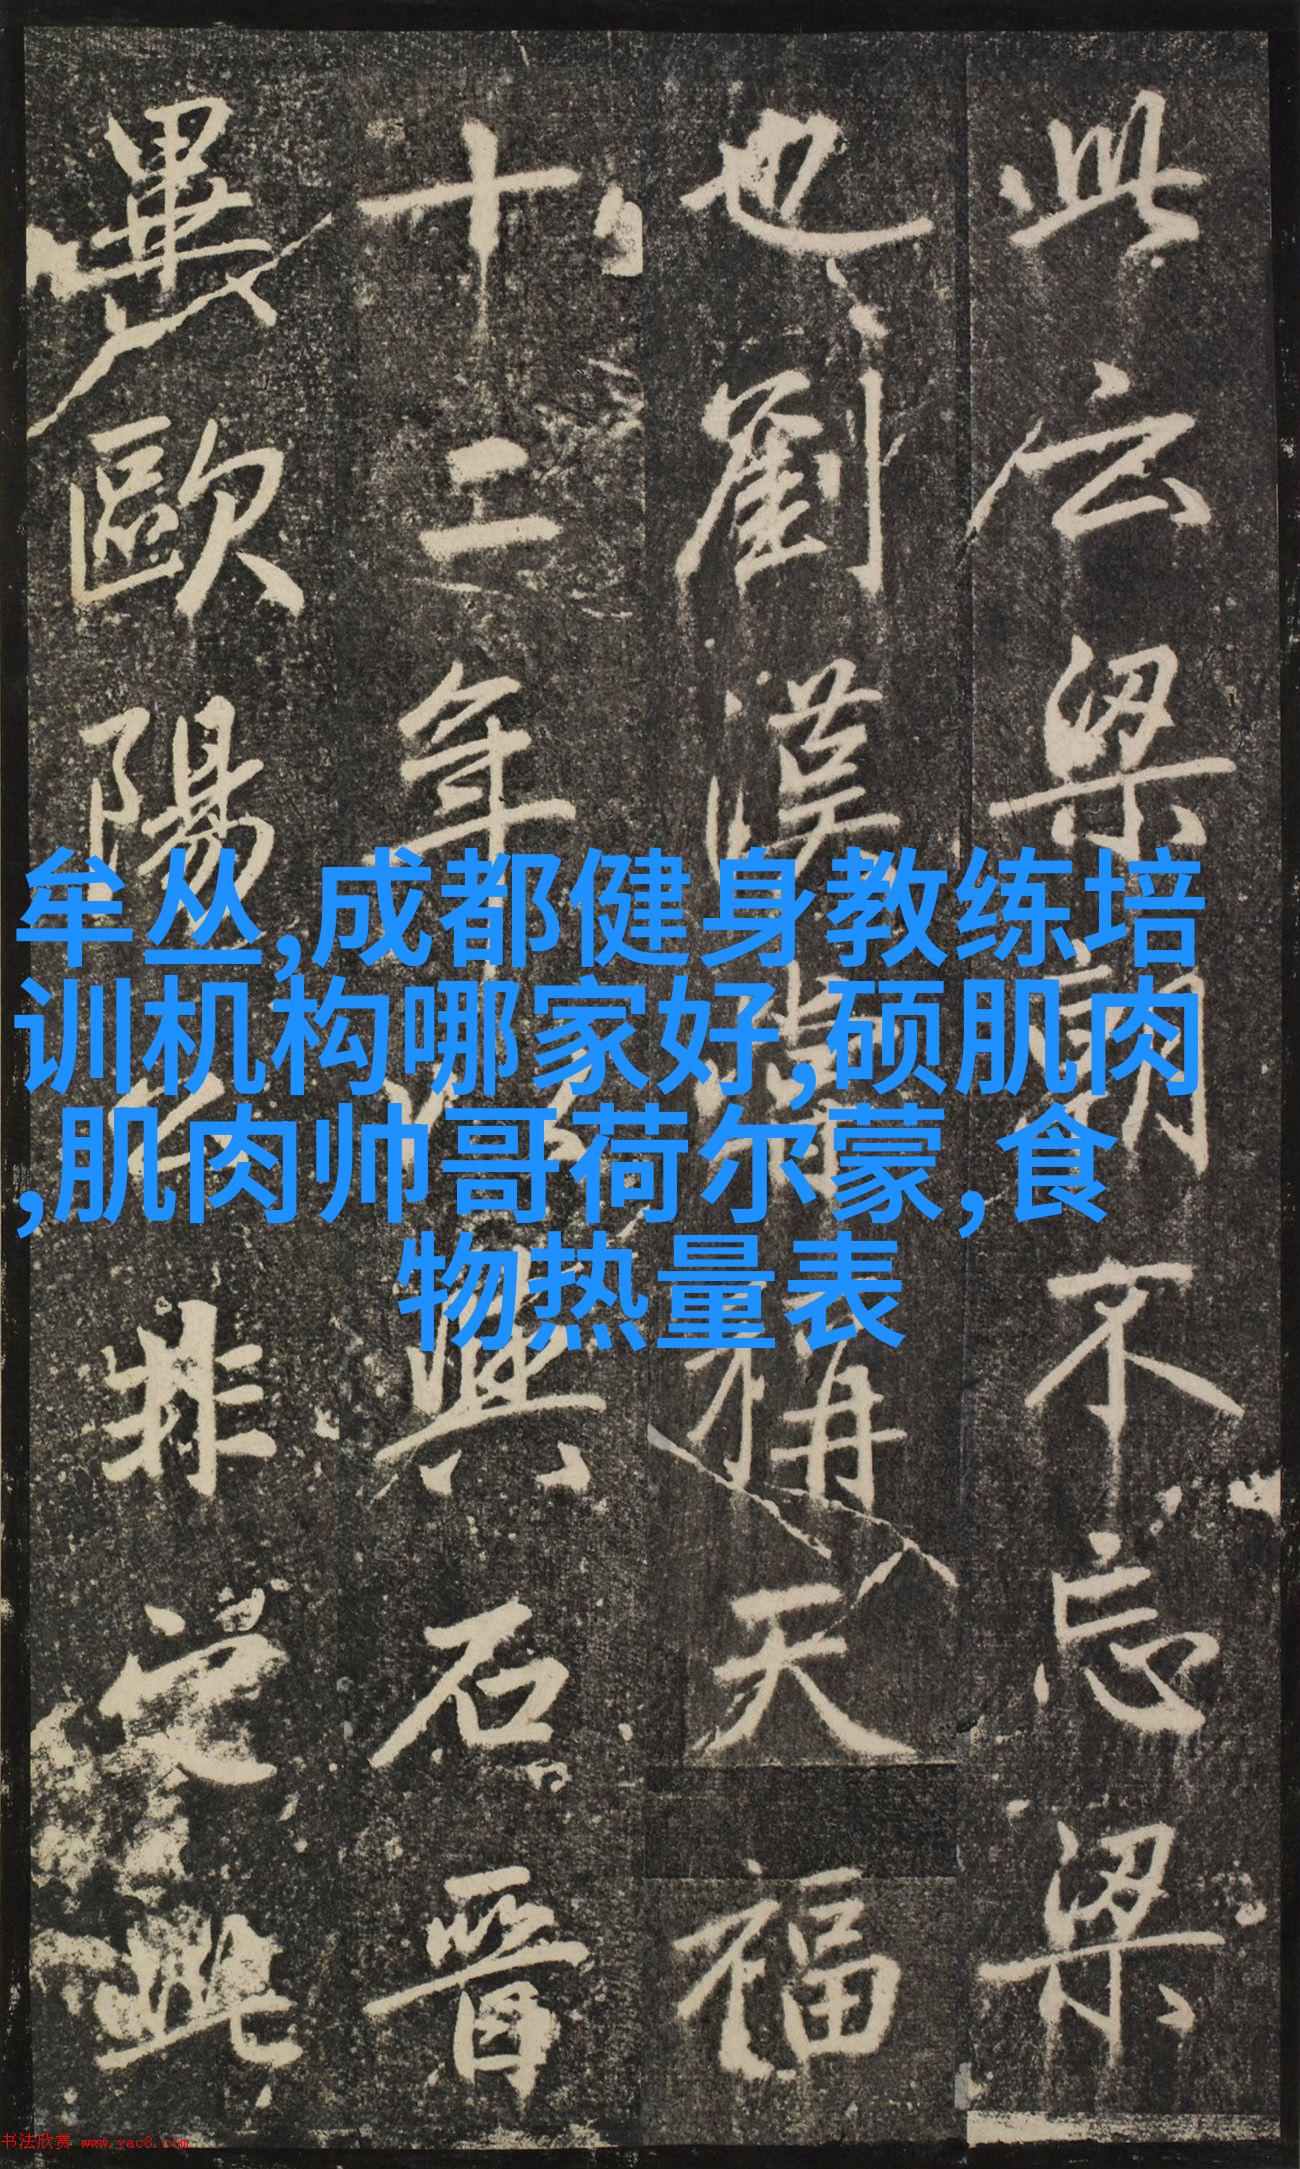 此云梁朝不忘梁
也劉漢稱天福
十二年興石晉
畢歐陽非受此
牟丛,成都健身教练培
训机构哪家好,硕肌肉
,肌肉帅哥荷尔蒙,食
物热量表
书法欣赏 www.yac8.com